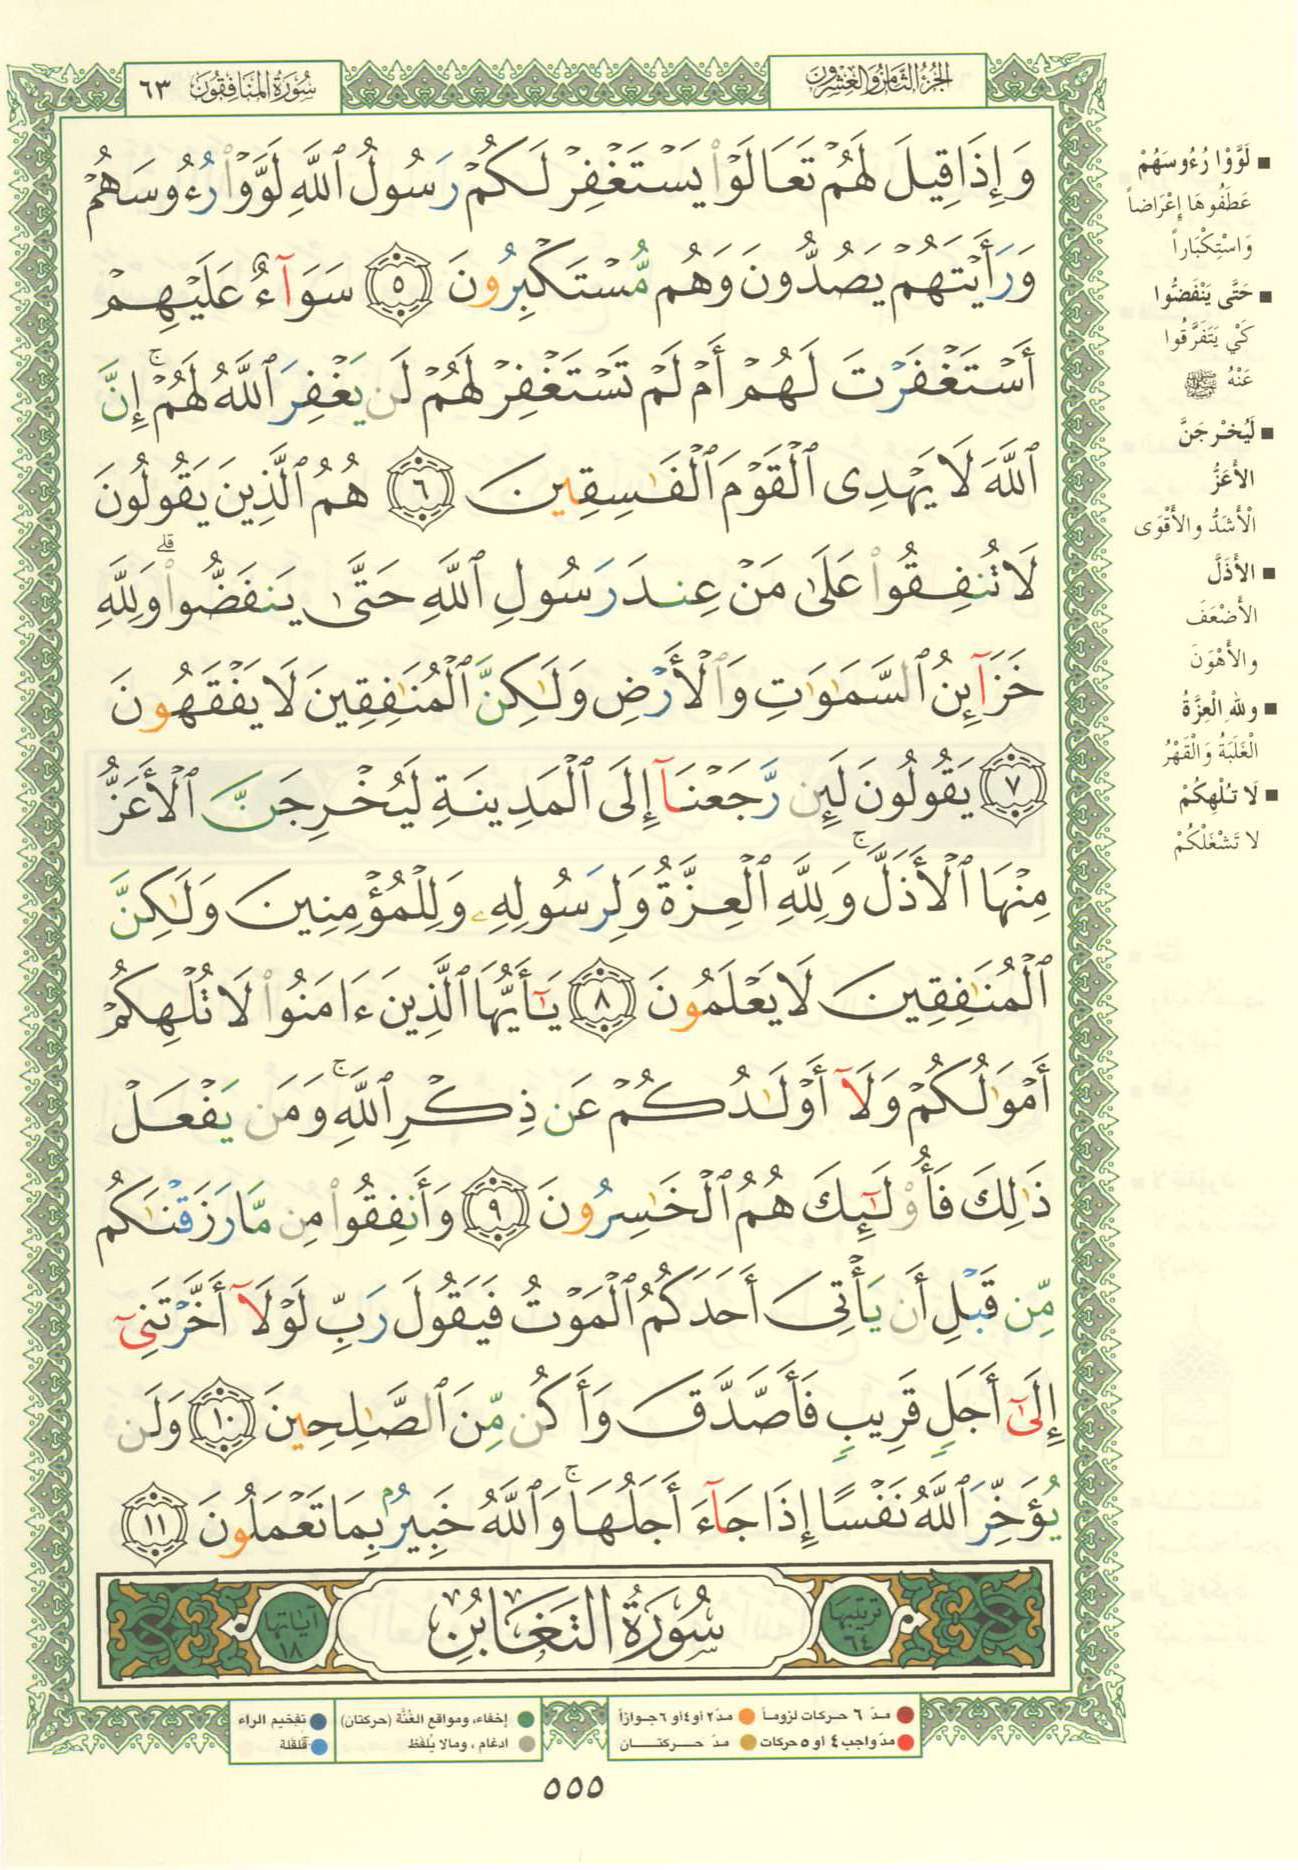 سُورَةُ المُنَافِقُونَ ٦٣
الجُزءُ الثَّامِنُ وَالعِشرُون
وَإِذَا قِيلَ لَهُمْ تَعَالَوْا۟ يَسْتَغْفِرْ لَكُمْ رَسُولُ ٱللَّهِ لَوَّوْا۟ رُءُوسَهُمْ
وَرَأَيْتَهُمْ يَصُدُّونَ وَهُم مُّسْتَكْبِرُونَ ٥ سَوَآءٌ عَلَيْهِمْ
أَسْتَغْفَرْتَ لَهُمْ أَمْ لَمْ تَسْتَغْفِرْ لَهُمْ لَن يَغْفِرَ ٱللَّهُ لَهُمْ ۚ إِنَّ
ٱللَّهَ لَا يَهْدِى ٱلْقَوْمَ ٱلْفَـٰسِقِينَ ٦ هُمُ ٱلَّذِينَ يَقُولُونَ
لَا تُنفِقُوا۟ عَلَىٰ مَنْ عِندَ رَسُولِ ٱللَّهِ حَتَّىٰ يَنفَضُّوا۟ ۗ وَلِلَّهِ
خَزَآئِنُ ٱلسَّمَـٰوَٰتِ وَٱلْأَرْضِ وَلَـٰكِنَّ ٱلْمُنَـٰفِقِينَ لَا يَفْقَهُونَ
٧ يَقُولُونَ لَئِن رَّجَعْنَآ إِلَى ٱلْمَدِينَةِ لَيُخْرِجَنَّ ٱلْأَعَزُّ
مِنْهَا ٱلْأَذَلَّ ۚ وَلِلَّهِ ٱلْعِزَّةُ وَلِرَسُولِهِۦ وَلِلْمُؤْمِنِينَ وَلَـٰكِنَّ
ٱلْمُنَـٰفِقِينَ لَا يَعْلَمُونَ ٨ يَـٰٓأَيُّهَا ٱلَّذِينَ ءَامَنُوا۟ لَا تُلْهِكُمْ
أَمْوَٰلُكُمْ وَلَآ أَوْلَـٰدُكُمْ عَن ذِكْرِ ٱللَّهِ ۚ وَمَن يَفْعَلْ
ذَٰلِكَ فَأُو۟لَـٰٓئِكَ هُمُ ٱلْخَـٰسِرُونَ ٩ وَأَنفِقُوا۟ مِن مَّا رَزَقْنَـٰكُم
مِّن قَبْلِ أَن يَأْتِىَ أَحَدَكُمُ ٱلْمَوْتُ فَيَقُولَ رَبِّ لَوْلَآ أَخَّرْتَنِىٓ
إِلَىٰٓ أَجَلٍ قَرِيبٍ فَأَصَّدَّقَ وَأَكُن مِّنَ ٱلصَّـٰلِحِينَ ١٠ وَلَن
يُؤَخِّرَ ٱللَّهُ نَفْسًا إِذَا جَآءَ أَجَلُهَا ۚ وَٱللَّهُ خَبِيرٌۢ بِمَا تَعْمَلُونَ ١١
ترتيبها ٦٤
سُورَةُ التَّغَابُنِ
آياتها ١٨
■ لَوَّوْا رُءُوسَهُمْ
عَطَفُوهَا إِعْرَاضاً
وَاسْتِكْبَاراً
■ حَتَّى يَنْفَضُّوا
كَيْ يَتَفَرَّقُوا
عَنْهُ ﷺ
■ لَيُخْرِجَنَّ
الأَعَزُّ
الْأَشَدُّ والأَقْوَى
■ الأَذَلَّ
الأَضْعَفَ
والأَهْوَنَ
■ وللهِ الْعِزَّةُ
الْغَلَبَةُ وَالْقَهْرُ
■ لَا تُلْهِكُمْ
لا تَشْغَلْكُمْ
مدّ ٦ حركات لزوماً
مدّ ٢ أو ٤ أو ٦ جوازاً
مدّ واجب ٤ أو ٥ حركات
مدّ حركتان
إخفاء، ومواقع الغُنَّة (حركتان)
ادغام، ومالا يُلفَظ
تفخيم الراء
قلقلة
٥٥٥